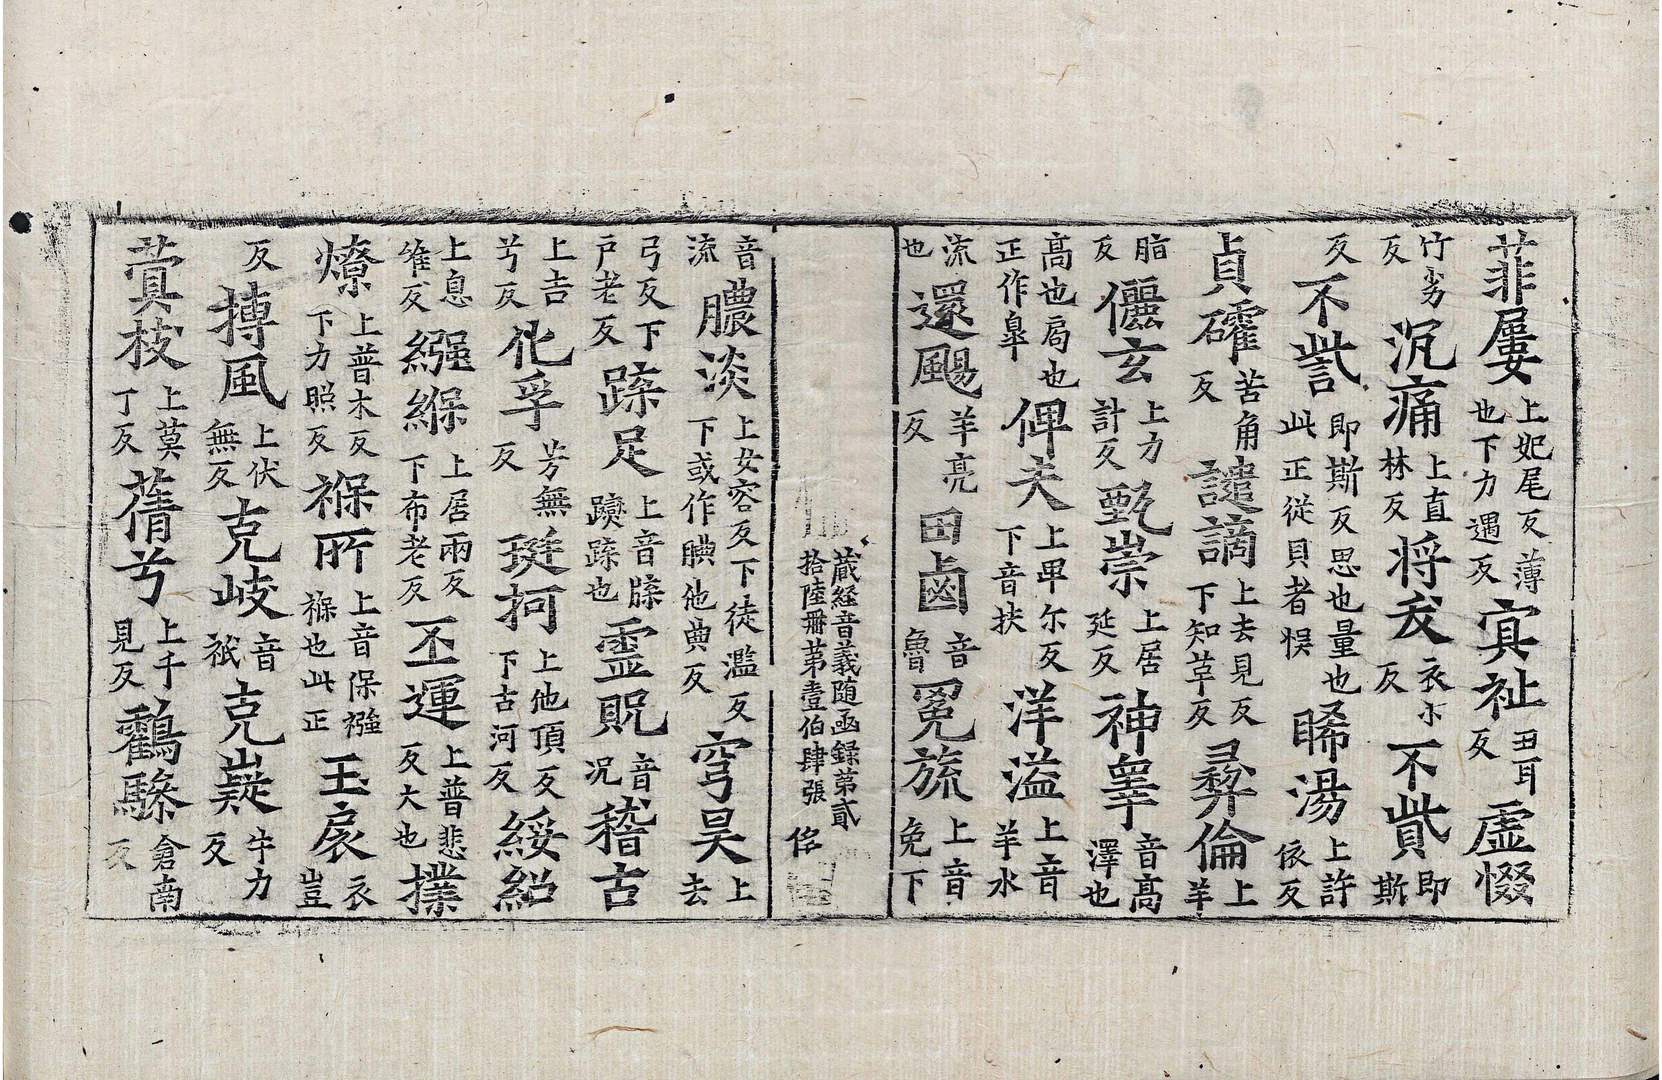 菲屢上妃尾反薄也下力遇反寘祉丑耳反虛惙
竹劣反沉痛上直林反将𢦓衣小反不貲即斯
反不訾即斯反思也量也此正從貝者悞睎湯上許依反
貞礭苦角反譴謫上去見反下知革反彞倫上羊
脂反儷玄上力計反甄崇上居延反神睾音高澤也
高也局也正作皐俾夫上卑尔反下音扶洋溢上音羊水
流也還颺羊亮反田鹵音魯冕旒上音免下
藏経音義随函録第貳
拾陸冊第壹伯肆張 㑉
音流膿淡上女容反下徒濫反下或作腆他典反穹昊上去
弓反下户老反𨂂足上音牒躞𨂂也霊貺音况稽古
上吉兮反化孚芳無反珽柯上他頂反下古河反綏紹
上息維反繦緥上居兩反下布老反丕運上普悲反大也撲
燎上普木反下力照反褓所上音保襁褓也此正玉扆衣豈
反摶風上伏無反克岐音祇克嶷牛力反
蓂枝上莫丁反蒨兮上千見反鸖驂倉南反